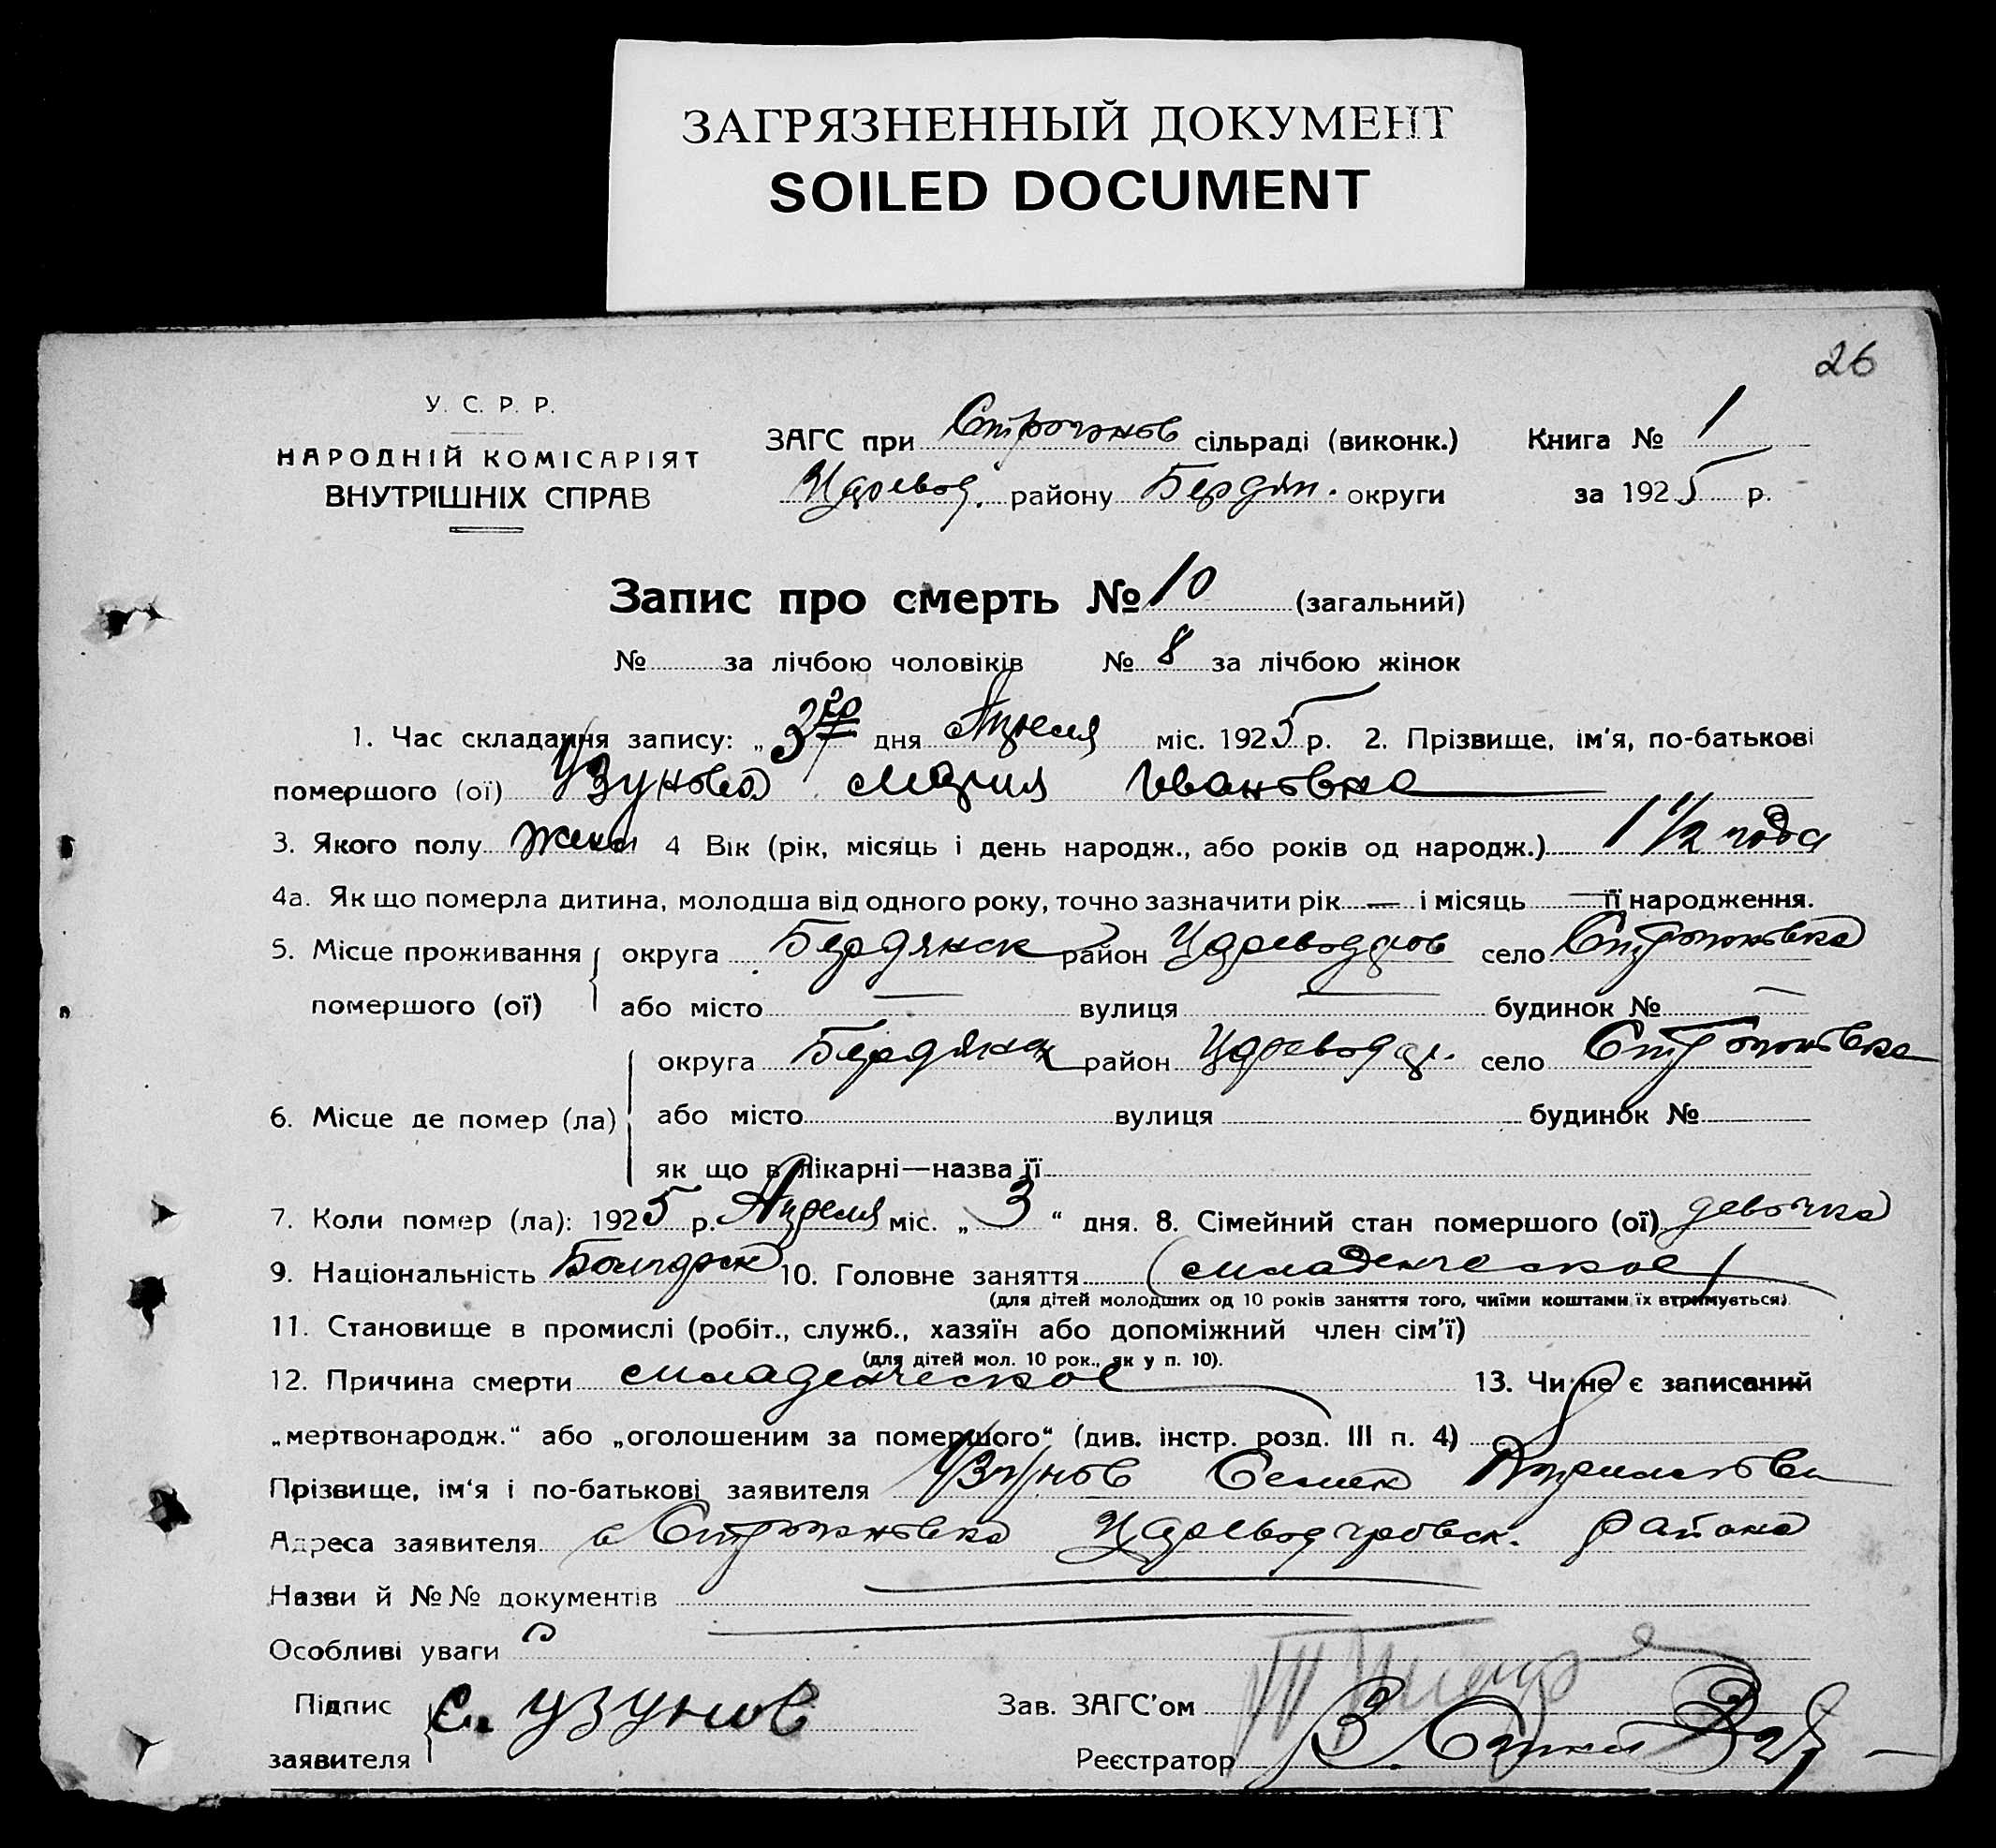 ЗАГРЯЗНЕННЫЙ ДОКУМЕНТ
SOILED DOCUMENT
26
У. С. Р. Р.
НАРОДНІЙ КОМІСАРІЯТ
ВНУТРІШНІХ СПРАВ
ЗАГС при Строганов сільраді (виконк.) Книга № 1
Царевод. району Бердян. округи за 1925 р.
Запис про смерть № 10 (загальний)
№ за лічбою чоловіків № 8 за лічбою жінок
1. Час складання запису: „3го дня Апреля міс. 1925 р. 2. Прізвище, ім'я, по-батькові
помершого (ої) Узунова Мария Ивановна
3. Якого полу жен 4 Вік (рік, місяць і день народж., або років од народж.) 1 1/2 года
4а. Як що померла дитина, молодша від одного року, точно зазначити рік — і місяць — її народження.
5. Місце проживання округа Бердянск район Цареводаров село Строгоновка
помершого (ої) або місто — вулиця — будинок № —
округа Бердянск район Царевод село Строгоновка
6. Місце де помер (ла) або місто вулиця будинок №
як що в лікарні—назва її
7. Коли помер (ла): 1925 р. Апреля міс. „3“ дня. 8. Сімейний стан помершого (ої) девочка
9. Національність Болгарк 10. Головне заняття (младенческое)
(для дітей молодших од 10 років заняття того, чиїми коштами їх втримується)
11. Становище в промислі (робіт., служб., хазяїн або допоміжний член сім'ї)
(для дітей мол. 10 рок., як у п. 10).
12. Причина смерти младенческое 13. Чи не є записаний
„мертвонародж.“ або „оголошеним за помершого“ (див. інстр. розд. III п. 4)
Прізвище, ім'я і по-батькові заявителя Узунов Семен
Адреса заявителя с Строгоновка района
Назви й №№ документів
Особливі уваги
Підпис С. Узунов Зав. ЗАГС'ом
заявителя Реєстратор В.